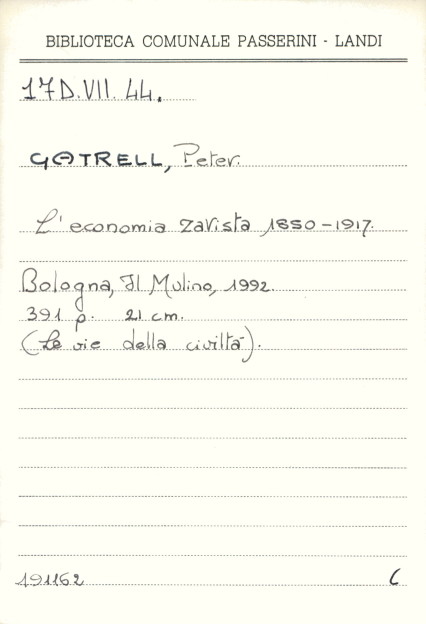 BIBLIOTECA COMUNALE PASSERINI - LANDI
17D.VII.44.
GATRELL, Peter.
L'economia zavista 1850-1917.
Bologna, Il Mulino, 1992.
391 p. 21 cm.
(Le vie della civiltà).
191162 C